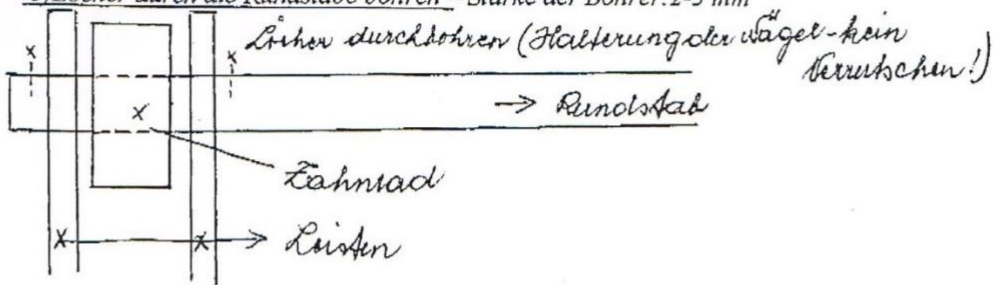 Löcher durch die Rundstäbe bohren – Stärke der Bohrer: 2-3 mm
Löcher durchbohren (Halterung der Nägel-kein
Verrutschen!)
Rundstab
Zahnrad
Leisten